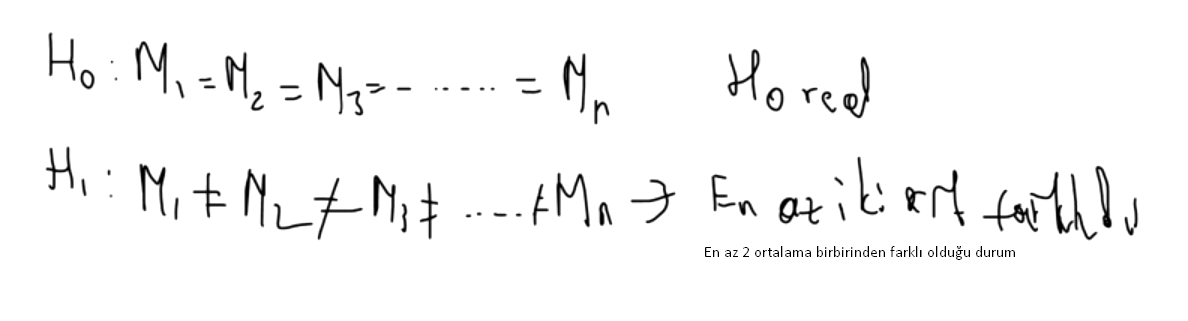 H₀ : M₁ = M₂ = M₃ = - ...... = Mₙ H₀ red
H₁ : M₁ ≠ M₂ ≠ M₃ ≠ ..... ≠ Mₙ → En az iki ort farklı
En az 2 ortalama birbirinden farklı olduğu durum